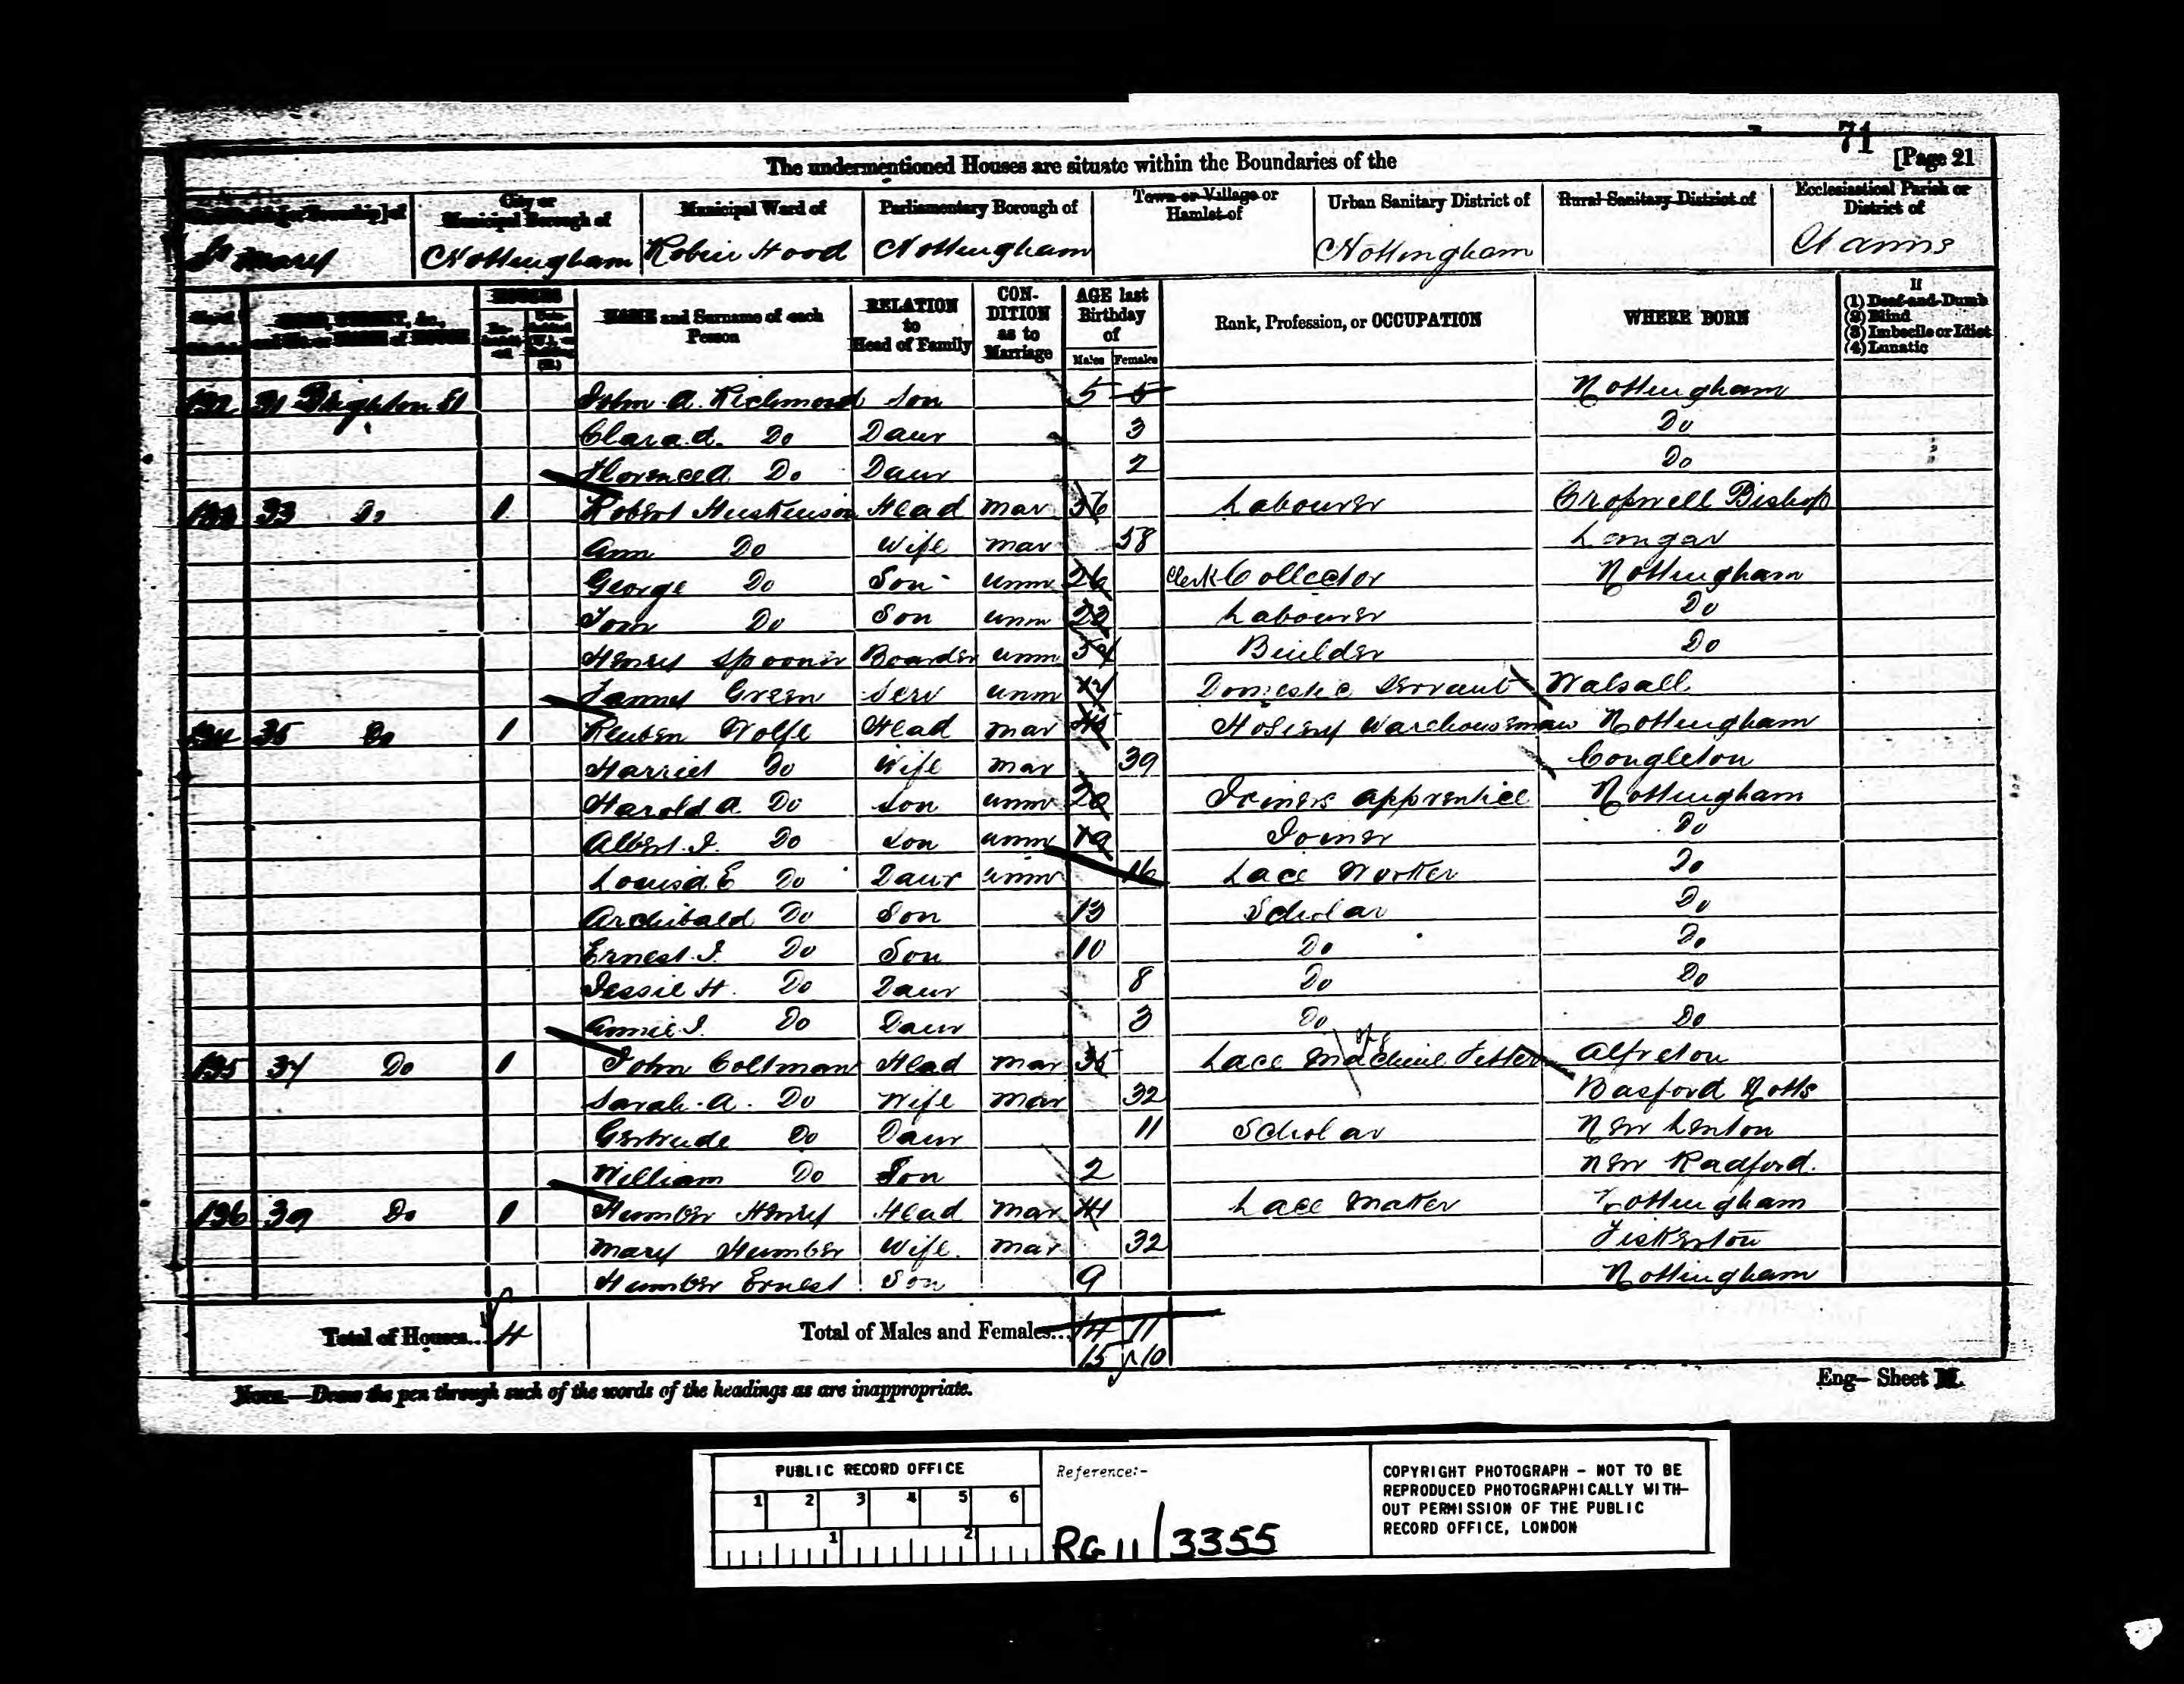 71
The undermentioned Houses are situate within the Boundaries of the [Page 21
City or Municipal Borough of
Municipal Ward of
Parliamentary Borough of
Town or Village or Hamlet of
Urban Sanitary District of
Rural Sanitary District of
Ecclesiastical Parish or District of
St Mary Nottingham Robin Hood Nottingham Nottingham St Anns
HOUSES
NAME and Surname of each Person
RELATION to Head of Family
CONDITION as to Marriage
AGE last Birthday of
Males Females
Rank, Profession, or OCCUPATION
WHERE BORN
If
(1) Deaf-and-Dumb
(2) Blind
(3) Imbecile or Idiot
(4) Lunatic
132 31 St John A. Richmond Son 5 5 Nottingham
Clara A. Do Daur 3 Do
Florence A. Do Daur 2 Do
133 33 Do 1 Robert Huskinson Head Mar 56 Labourer Cropwell Bishop
Ann Do Wife Mar 58 Langar
George Do Son Unm 26 Clerk Collector Nottingham
Tom Do Son Unm 22 Labourer Do
Henry Spooner Boarder Unm Builder Do
Fanny Green Serv Unm Domestic Servant Walsall
134 35 Do 1 Reuben Wolfe Head Mar Hosiery Warehouseman Nottingham
Harriet Do Wife Mar 39 Congleton
Harold A Do Son Unm 20 Joiners apprentice Nottingham
Albert J. Do Son Unm 19 Joiner Do
Louisa E Do Daur Unm 16 Lace Worker Do
Archibald Do Son 13 Scholar Do
Ernest J. Do Son 10 Do Do
Jessie H. Do Daur 8 Do Do
Annie J. Do Daur 3 Do Do
135 37 Do 1 John Coltman Head Mar 35 Lace Machine Fitter Alfreton
Sarah A. Do Wife Mar 32 Basford Notts
Gertrude Do Daur 11 Scholar New Lenton
William Do Son 2 New Radford.
136 39 Do 1 Humber Henry Head Mar 41 Lace Maker Nottingham
Mary Humber Wife. Mar 32 Fiskerton
Humber Ernest Son 9 Nottingham
Total of Houses... 4 Total of Males and Females... 14 11
15 10
Note.—Draw the pen through such of the words of the headings as are inappropriate.
Eng— Sheet
PUBLIC RECORD OFFICE
1 2 3 4 5 6
1 2
Reference:-
RG 11/3355
COPYRIGHT PHOTOGRAPH - NOT TO BE
REPRODUCED PHOTOGRAPHICALLY WITH-
OUT PERMISSION OF THE PUBLIC
RECORD OFFICE, LONDON